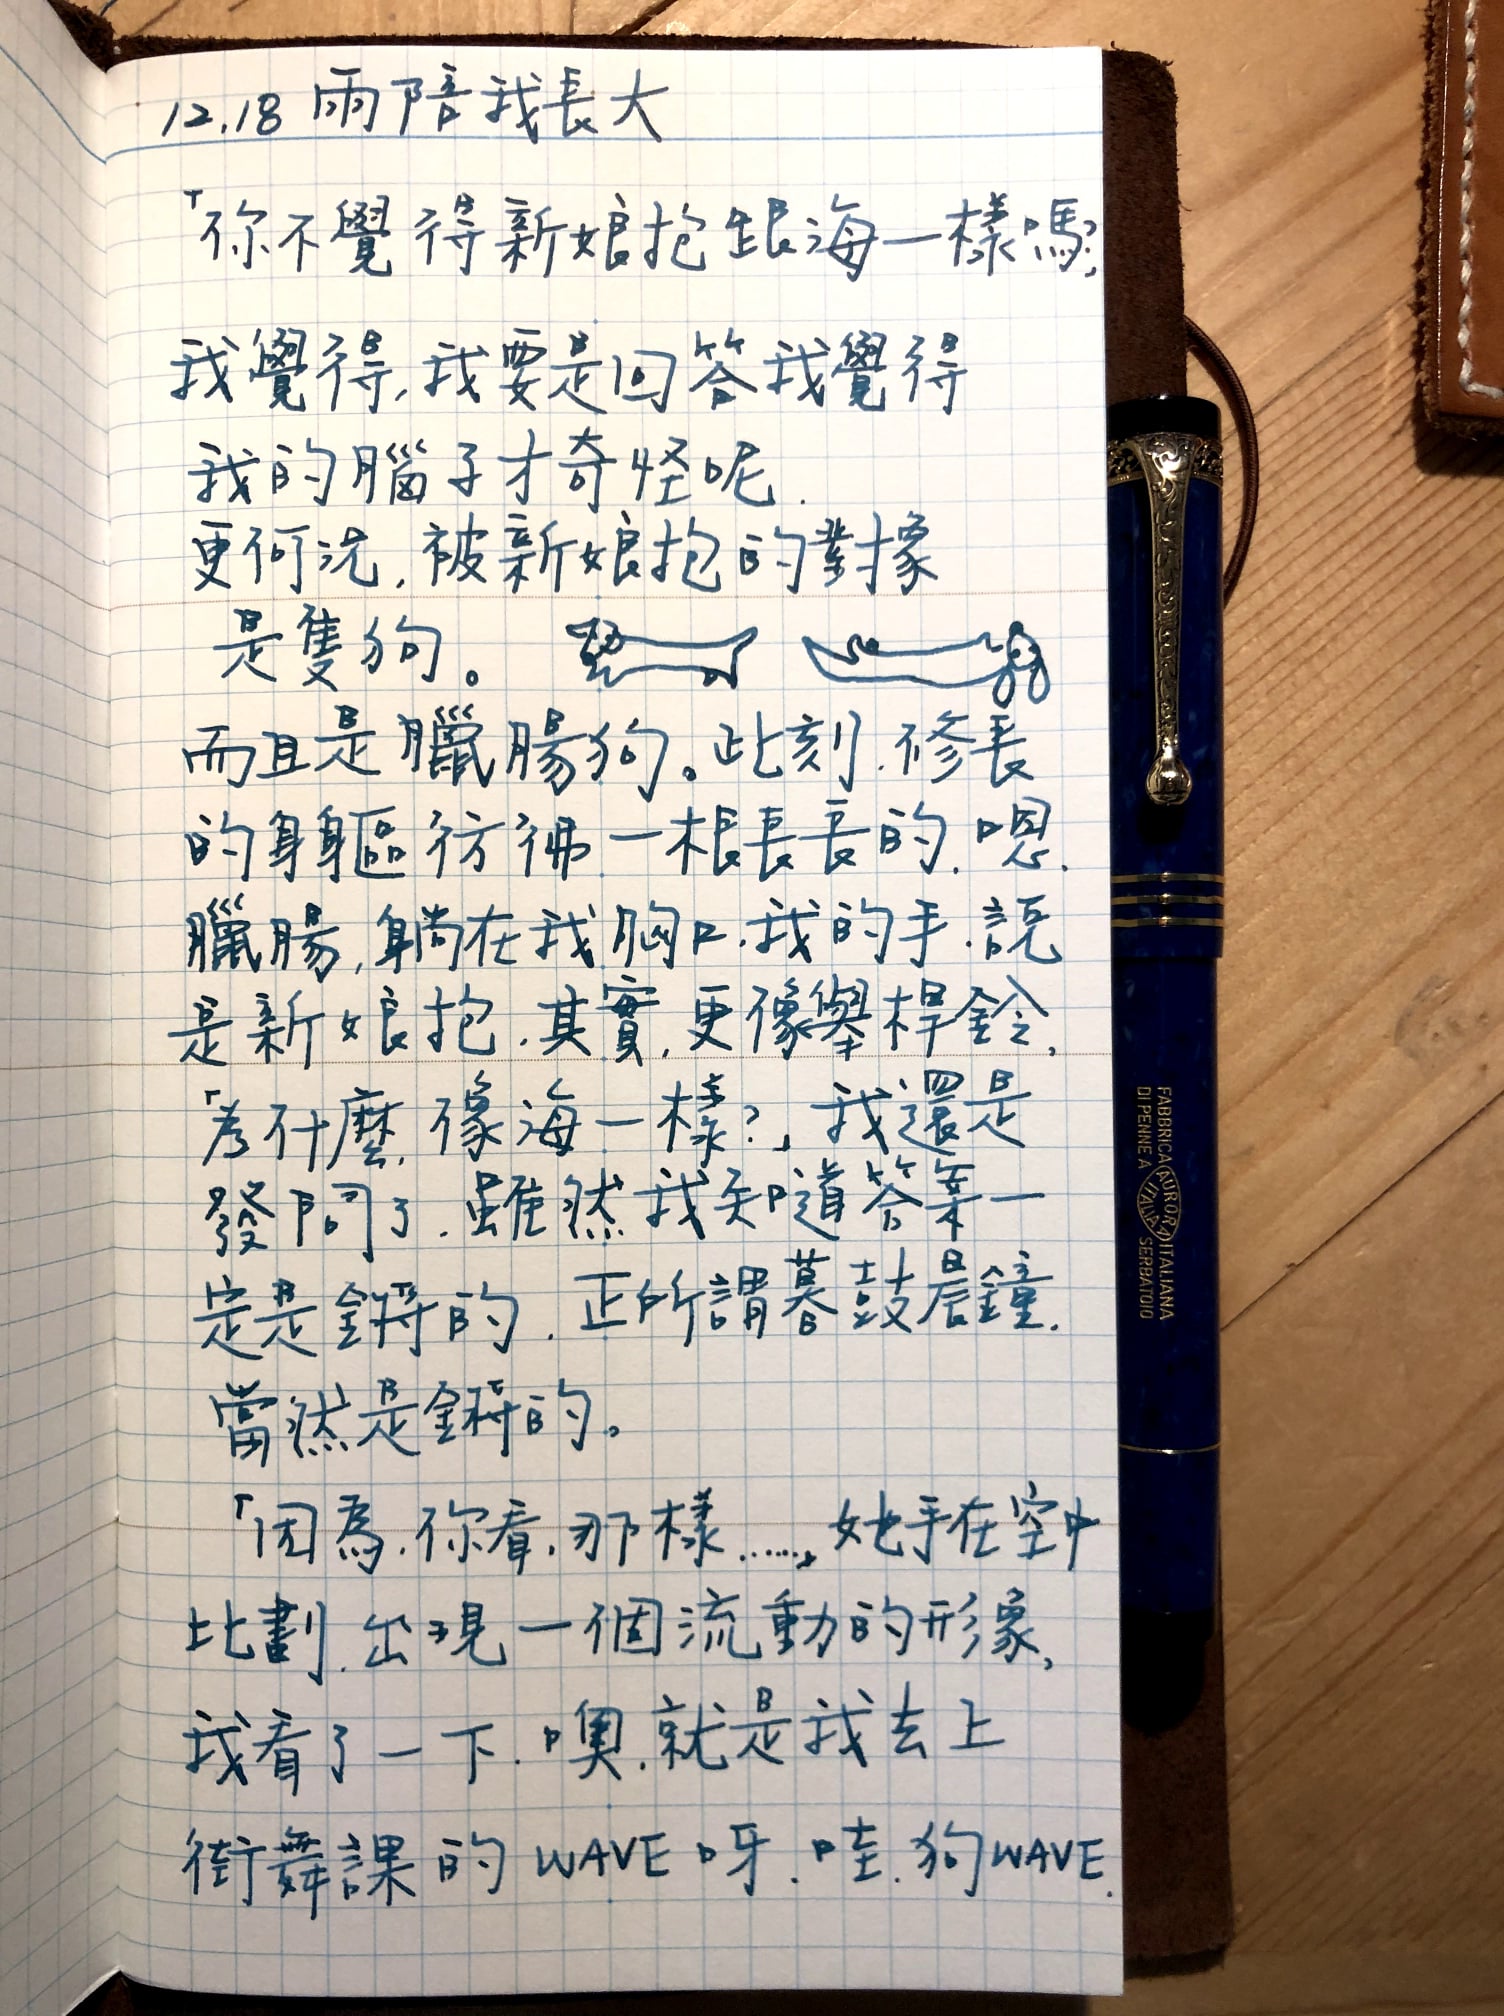 12.18 雨陪我長大
「你不覺得新娘抱跟海一樣嗎?」
我覺得,我要是回答我覺得
我的腦子才奇怪呢.
更何況,被新娘抱的對像
是隻狗。
而且是臘腸狗。此刻,修長
的身軀彷彿一根長長的,嗯,
臘腸,躺在我胸口,我的手,說
是新娘抱,其實,更像舉桿鈴,
「為什麼,像海一樣?」我還是
發問了,雖然我知道答案一
定是鏘的,正所謂暮鼓晨鐘,
當然是鏘的。
「因為,你看,那樣……」她手在空中
比劃,出現一個流動的形象,
我看了一下,噢,就是我去上
街舞課的WAVE呀,哇,狗WAVE.
FABBRICA ITALIANA
DI PENNE A SERBATOIO
AURORA
ITALIA